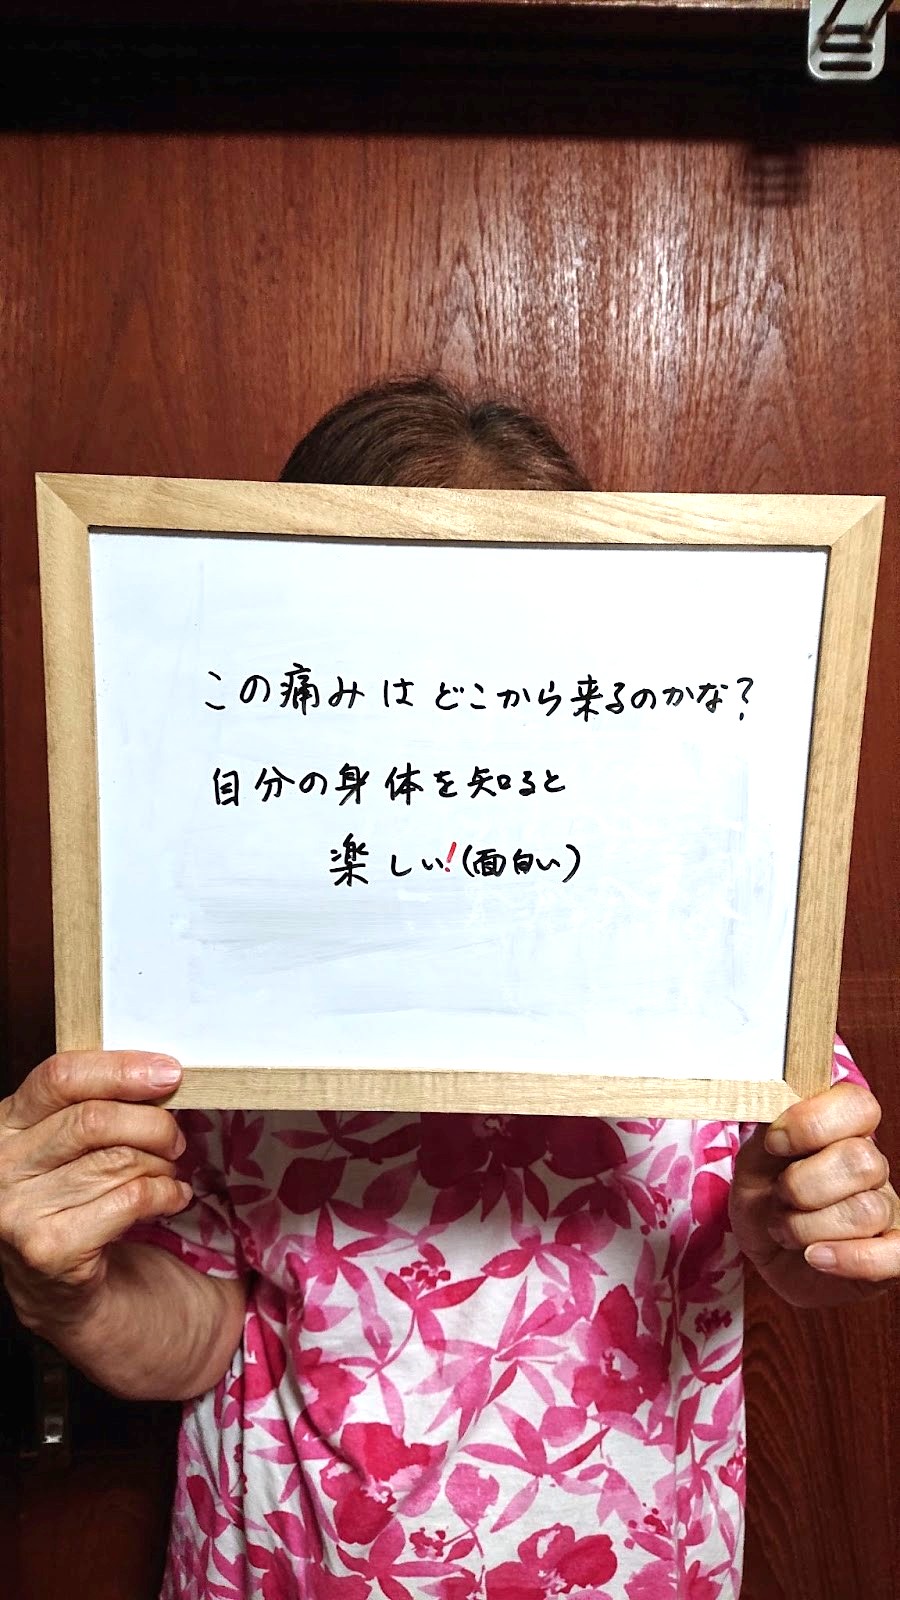 この痛みはどこから来るのかな?
自分の身体を知ると
楽しい!(面白い)